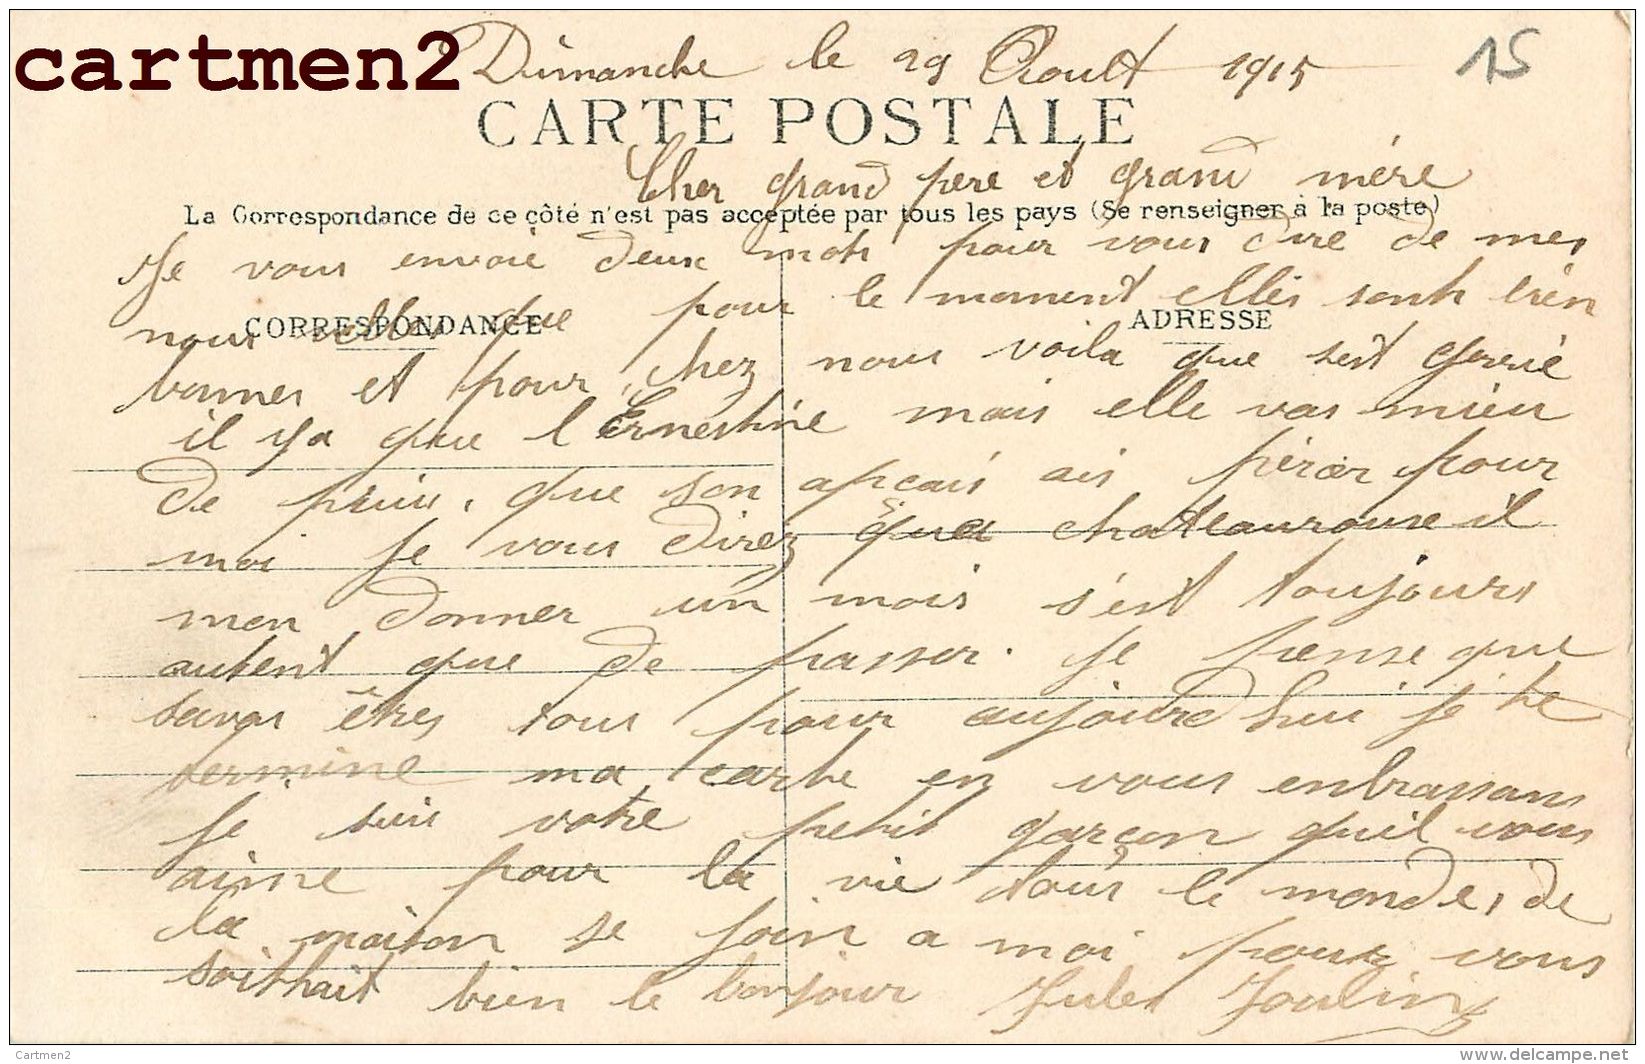 cartmen2
Dimanche le 29 Aoult 1915
15
CARTE POSTALE
Cher grand père et grand mère
La Correspondance de ce côté n'est pas acceptée par tous les pays (Se renseigner à la poste)
Je vous envoie deux mots pour vous dire de mes
nouvelles que pour le moment elles sonts trèn
CORRESPONDANCE
ADRESSE
bonnes et pour chez nous voila que seit
il ya que l Ernestine mais elle vas mieu
de puiu, que son apcais ais percer pour
moi je vous direz qua chateauroux il
mon donner un mois s'est toujours
autent que de passer. je pense que
savas êtres tous pour aujourd hui je te
termine ma carte en vous enbrassans
je suis votre petit garçon quil vous
aime pour la vie tous le monde, de
la maison se join a moi pour vous
soithait bien le bonjour Jules Joulin
Cartmen2
www.delcampe.net